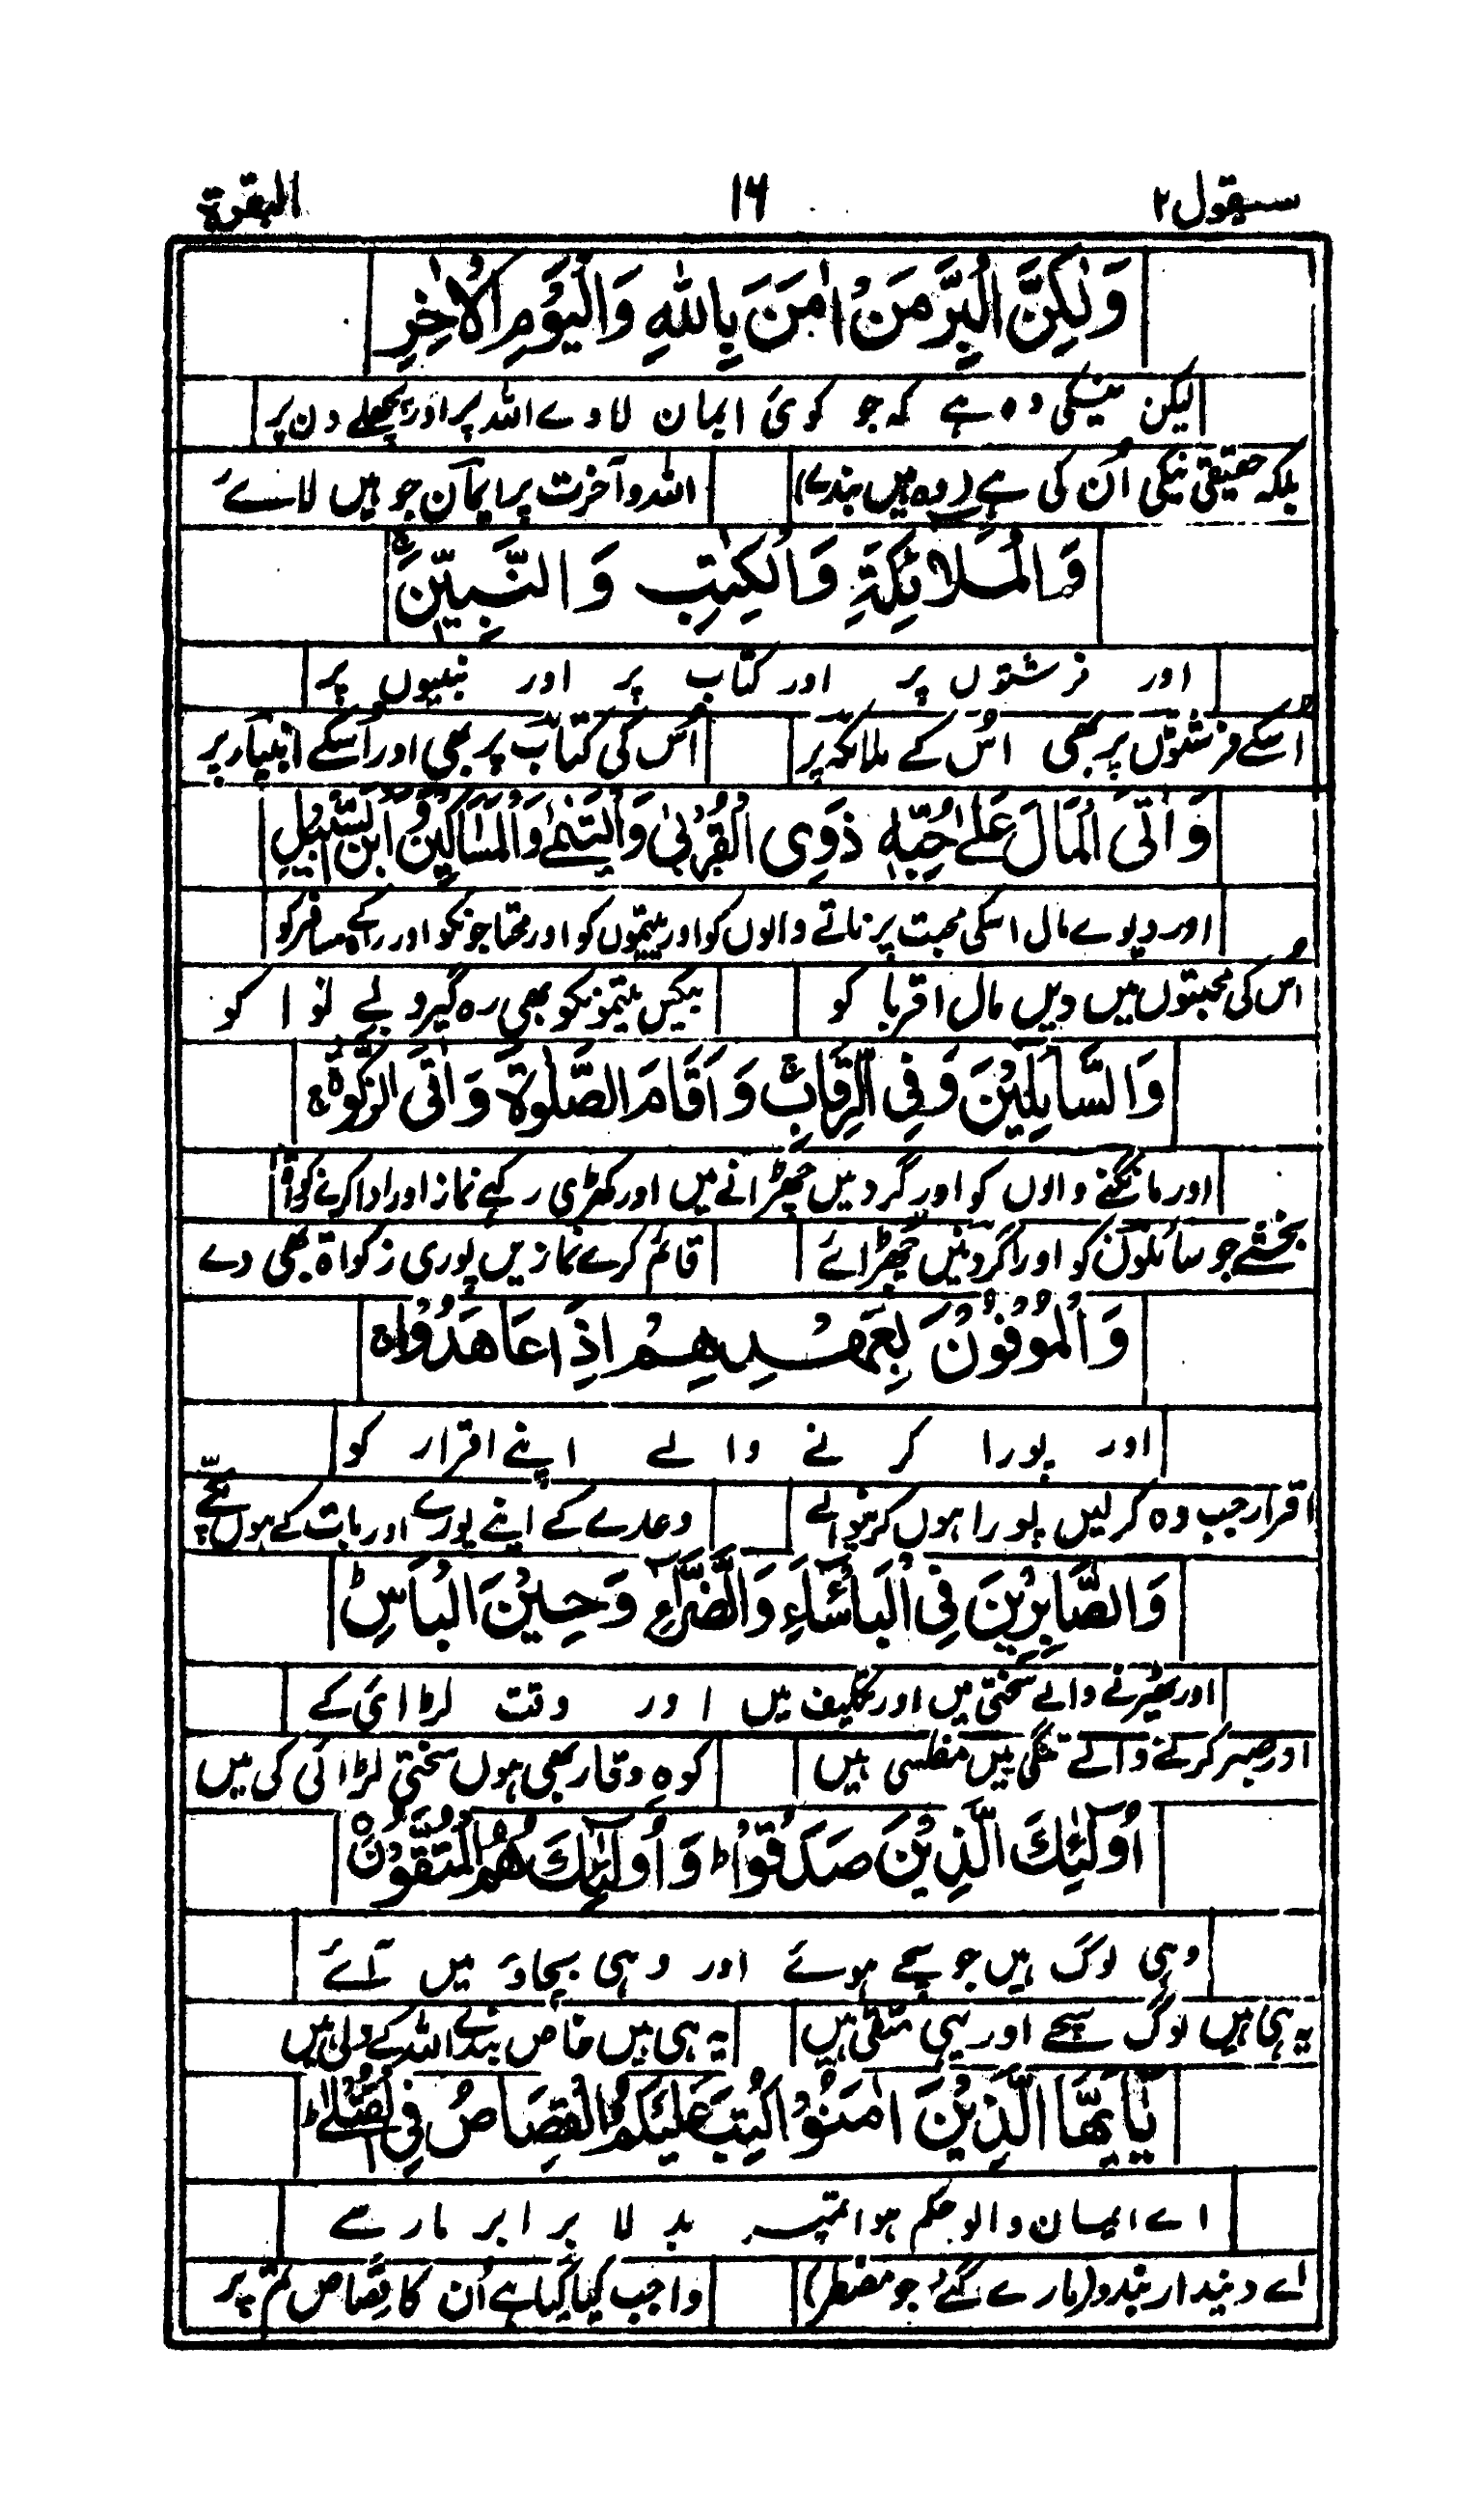 سیقول ۲ ۱۶ البقرة
وَلٰكِنَّ الْبِرَّ مَنْ اٰمَنَ بِاللّٰهِ وَالْيَوْمِ الْاٰخِرِ
لیکن نیکی وہ ہے کہ جو کوئ ایمان لاوے اللہ پر اور پچھلے دن پر
بلکہ حقیقی نیکی اُن کی ہے (وہ ہیں بندے) اللہ و آخرت پر ایمان جو ہیں لائے
وَالْمَلَائِكَةِ وَالْكِتٰبِ وَ النَّبِيّٖنَ ۚ
اور فرشتوں پر اور کتاب پر اور نبیوں پر
اُسکے فرشتوں پر بھی اُس کے ملائکہ پر اُس کی کتاب پر بھی اور اُسکے انبیاء پر
وَ اٰتَى الْمَالَ عَلٰى حُبِّهٖ ذَوِى الْقُرْبٰى وَالْيَتٰمٰى وَالْمَسٰكِيْنَ وَابْنَ السَّبِيْلِ
اور دیوے مال اسکی محبت پر ناتے والوں کو اور یتیموں کو اور محتاجونکو اور راہ کے مسافر کو
اُس کی محبتوں میں دیں مال اقربا کو بیکس یتیمونکو بھی رہ گیر و بے نوا کو
وَ السَّآئِلِيْنَ وَ فِى الرِّقَابِ ۚ وَ اَقَامَ الصَّلٰوةَ وَ اٰتَى الزَّكٰوةَ ۚ
اور مانگنے والوں کو اور گردنیں چھڑانے میں اور کھڑی رکہے نماز اور ادا کرے زکوٰة
بخشے جو سائلوں کو اور گردنیں چھڑائے قائم کرے نمازیں پوری زکواة بھی دے
وَ الْمُوْفُوْنَ بِعَهْدِهِمْ اِذَا عَاهَدُوْا ۚ
اور پورا کر نے والے اپنے اقرار کو
اقرار جب وہ کر لیں پورا ہوں کرنیوالے وعدے کے اپنے پورے اور بات کے ہوں سچے
وَ الصَّابِرِيْنَ فِى الْبَاْسَآءِ وَالضَّرَّآءِ وَ حِيْنَ الْبَاْسِ ؕ
اور ٹھیرنے والے سختی میں اور تکلیف میں اور وقت لڑائ کے
اور صبر کرنے والے تنگی میں مفلسی میں کوہِ وقار بھی ہوں سختی لڑائی کی میں
اُولٰٓئِكَ الَّذِيْنَ صَدَقُوْا ؕ وَ اُولٰٓئِكَ هُمُ الْمُتَّقُوْنَ ۝
وہی لوگ ہیں جو سچے ہوئے اور وہی بچاؤ میں آئے
یہ ہی ہیں لوگ سچے اور یہی متقی ہیں یہ ہی ہیں خاص بندے اللہ کے ولی ہیں
يٰٓاَيُّهَا الَّذِيْنَ اٰمَنُوْا كُتِبَ عَلَيْكُمُ الْقِصَاصُ فِى الْقَتْلٰى ؕ
اے ایمان والو حکم ہوا تمپر بدلا برابر مارے
اے دیندار بندو (مارے گئے جو مضطر) واجب کیا گیا ہے اُن کا قصاص تم پر